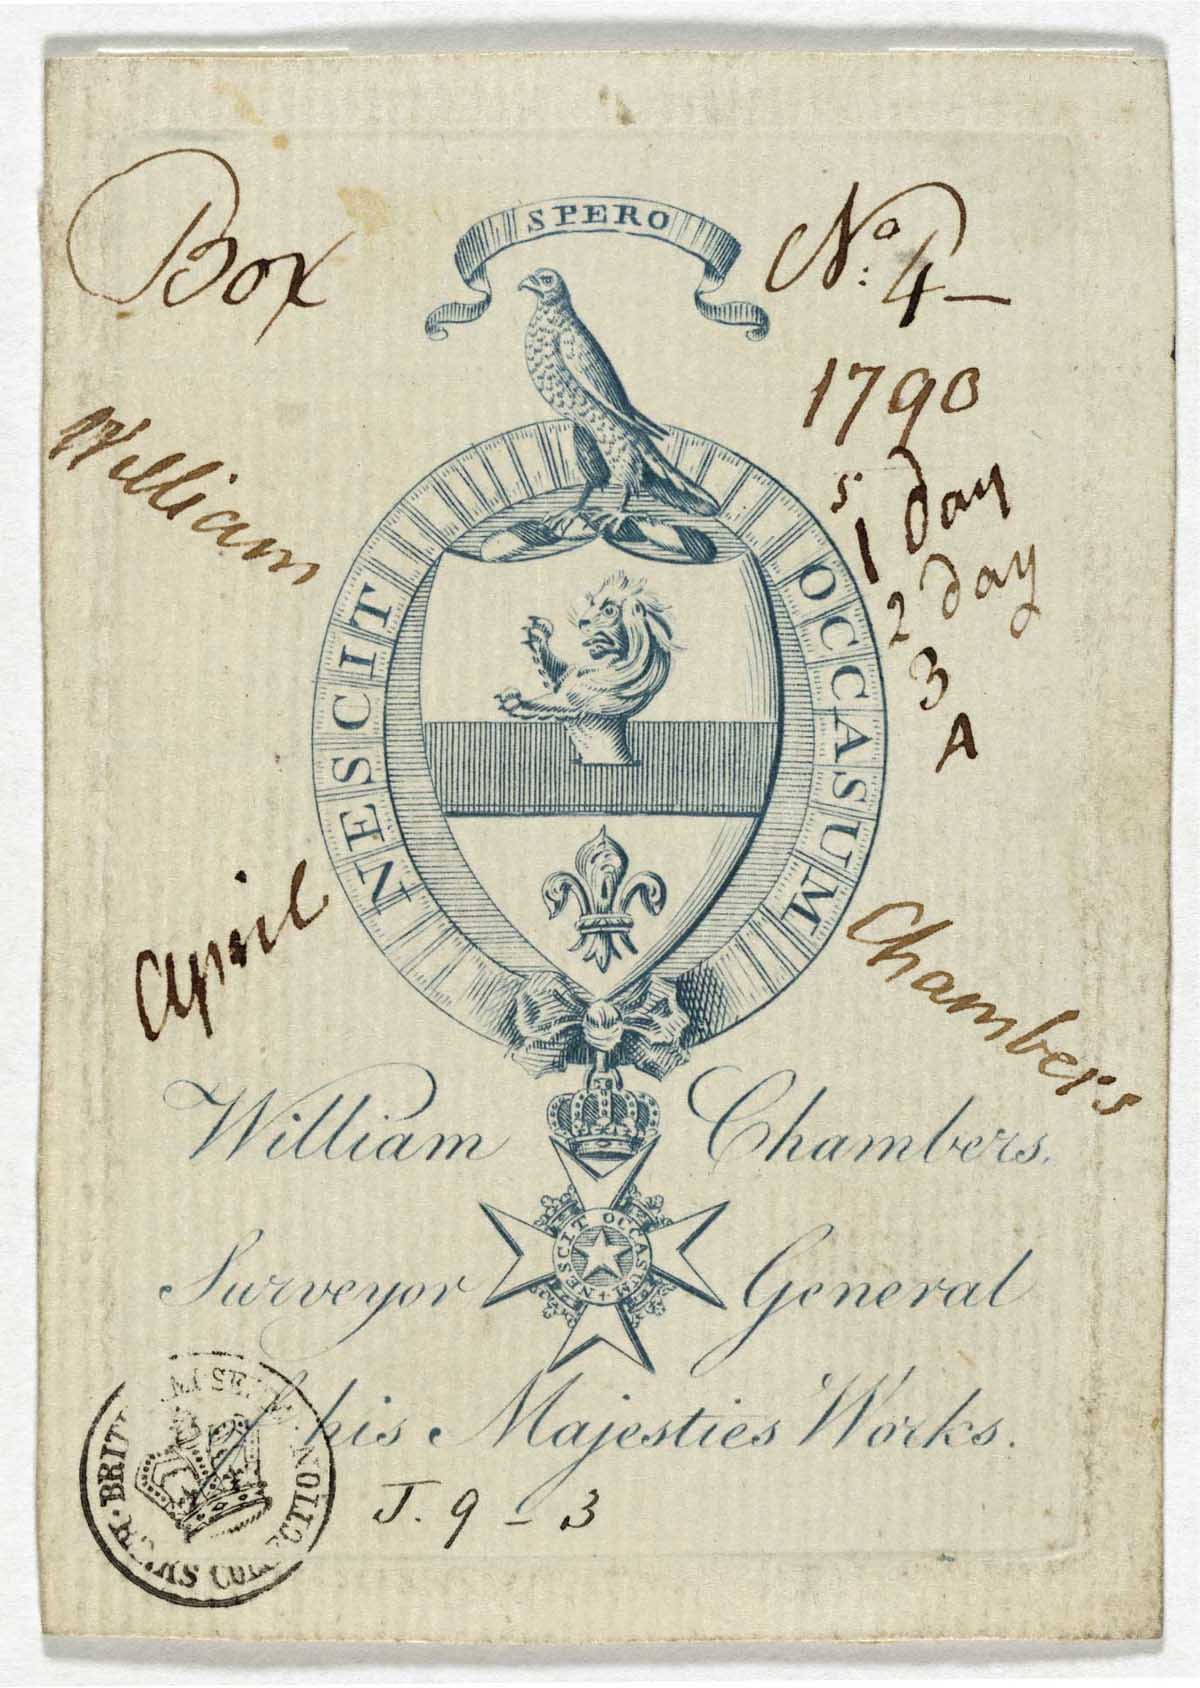 SPERO
Box
No: 4 —
1790
William
5 1 day
2 day
3
4
NESCIT OCCASUM
April
Chambers
William Chambers.
NESCIT OCCASUM +
Surveyor General
his Majesties Works.
J. 9 - 3